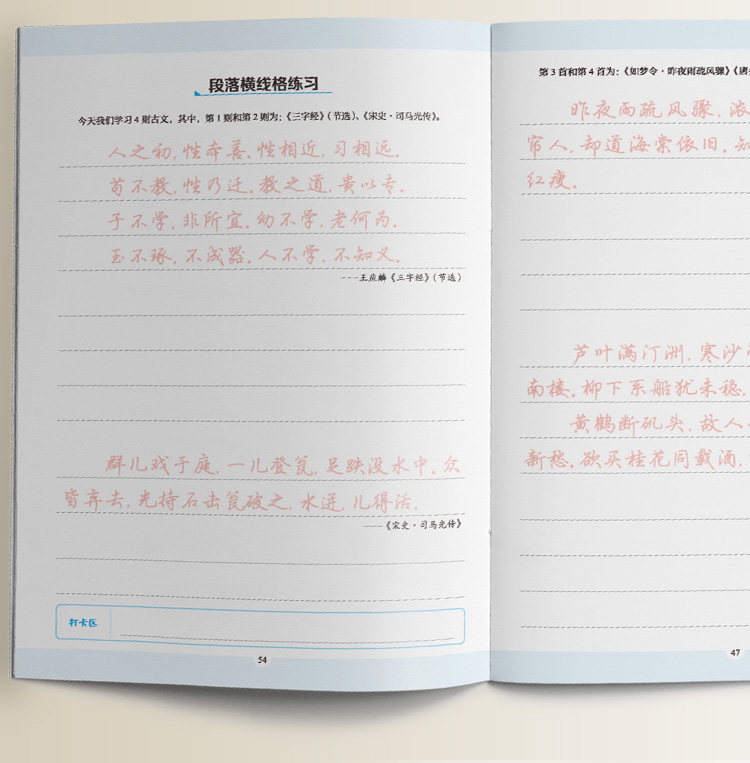 段落横线格练习
今天我们学习4则古文，其中，第1则和第2则为：《三字经》（节选）、《宋史·司马光传》。
人之初，性本善。性相近，习相远。
苟不教，性乃迁。教之道，贵以专。
子不学，非所宜。幼不学，老何为。
玉不琢，不成器。人不学，不知义。
---王应麟《三字经》（节选）
群儿戏于庭，一儿登瓮，足跌没水中。众
皆弃去，光持石击瓮破之，水迸，儿得活。
——《宋史·司马光传》
打卡区
54
第3首和第4首为：《如梦令·昨夜雨疏风骤》《唐
昨夜雨疏风骤，浓
帘人，却道海棠依旧。知
红瘦。
芦叶满汀洲，寒沙带
南楼。柳下系船犹未稳，
黄鹤断矶头，故人
新愁。欲买桂花同载酒，
47